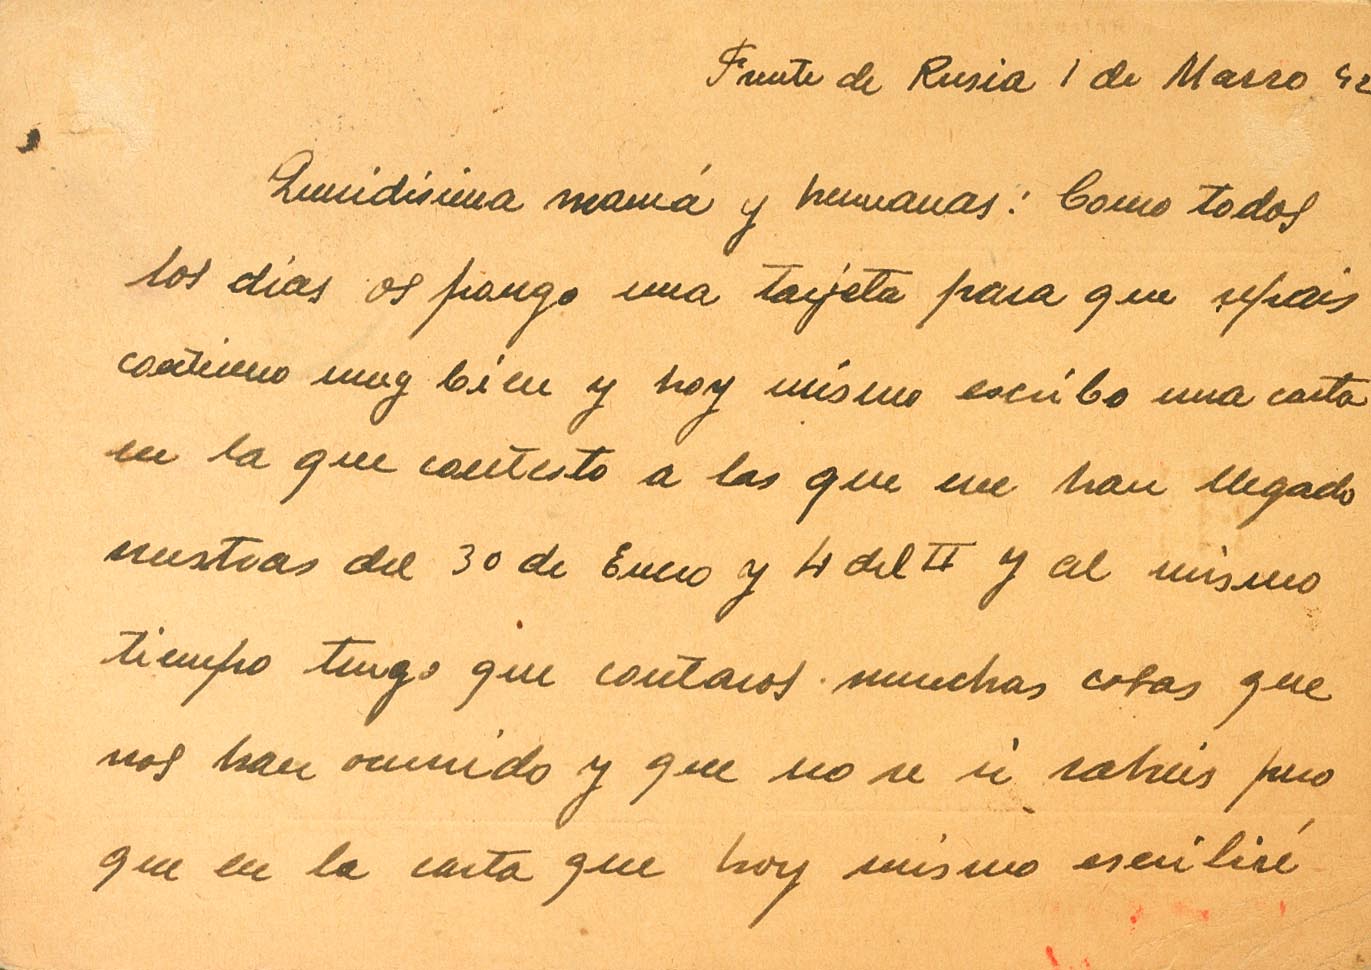 Frente de Rusia 1 de Marzo 42
Queridísima mamá y hermanas: Como todos
los días os pongo una tarjeta para que sepáis
continuo muy bien y hoy mismo escribo una carta
en la que contesto a las que me han llegado
vuestras del 30 de Enero y 4 del II y al mismo
tiempo tengo que contaros muchas cosas que
nos han ocurrido y que no se si sabréis pero
que en la carta que hoy mismo escribiré